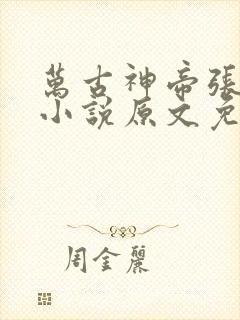 萬古神帝張
小說原文免
周金麗